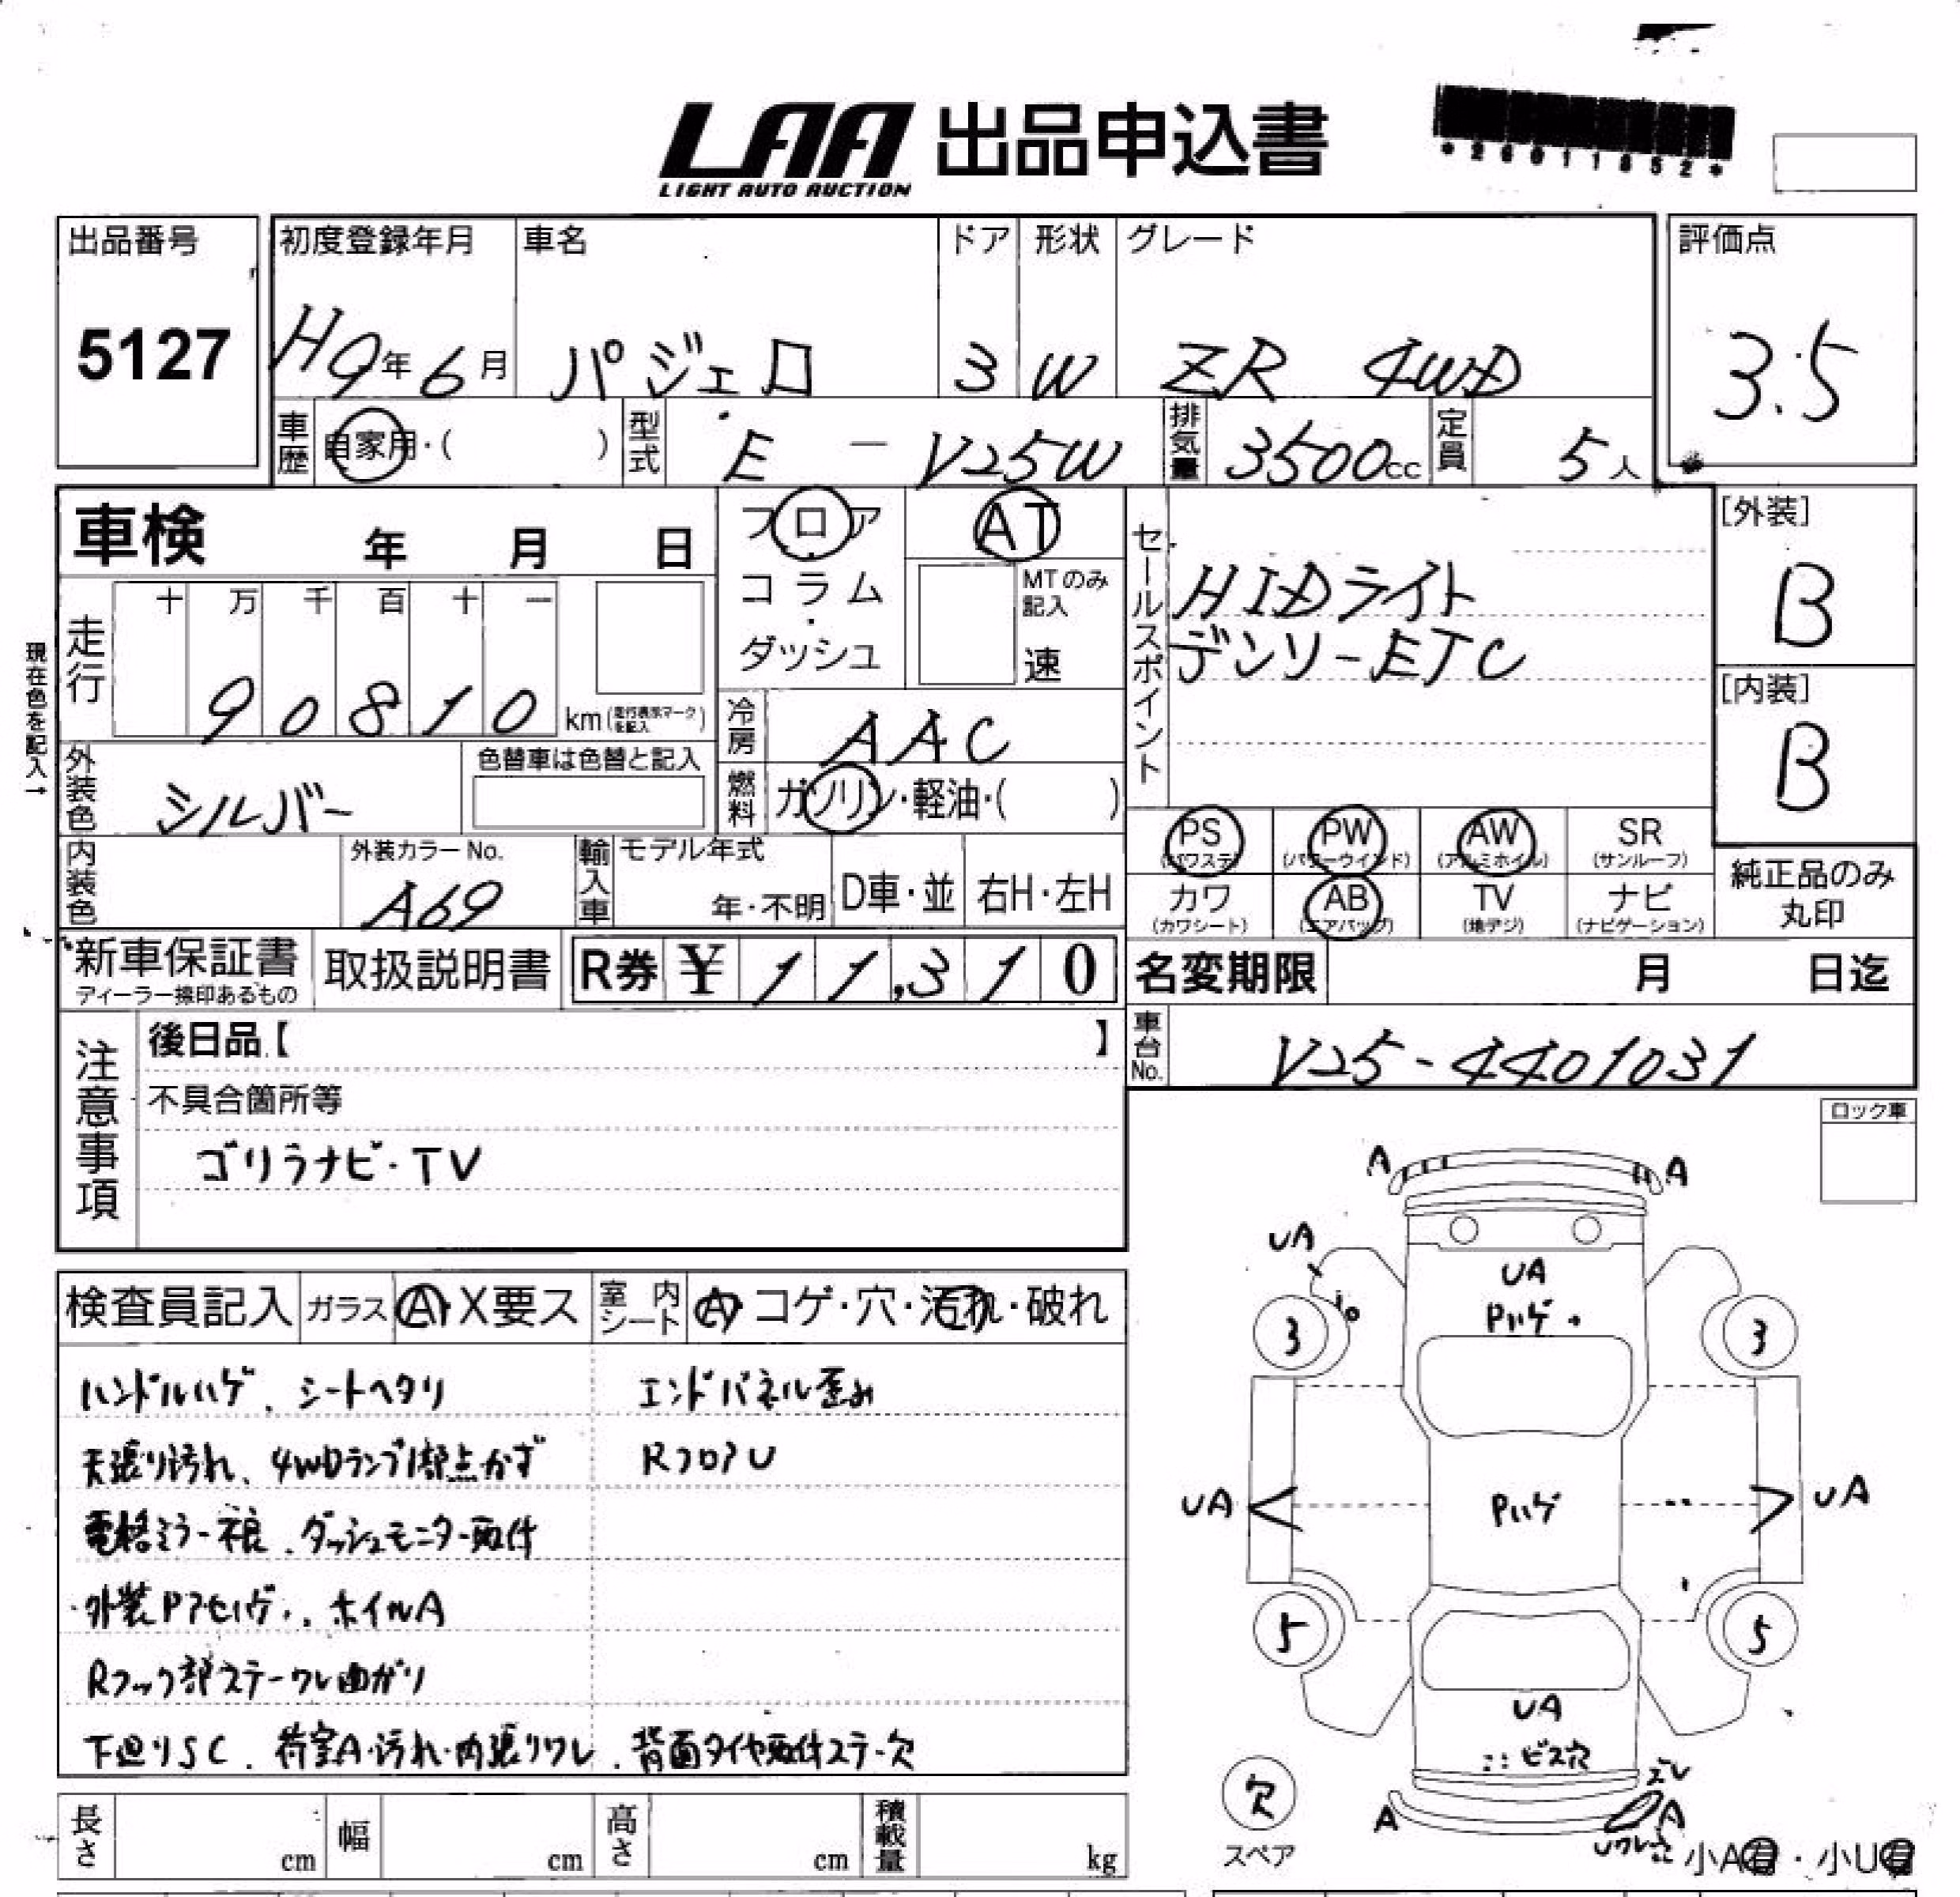 LAA 出品申込書
LIGHT AUTO AUCTION
*26011852*
出品番号 初度登録年月 車名 ドア 形状 グレード 評価点
5127 H9年6月 パジェロ 3 W ZR 4WD 3.5
車歴 自家用・( ) 型式 E - V25W 排気量 3500cc 定員 5人
車検 年 月 日 フロア AT
[外装]
B
コラム MTのみ記入
・
ダッシュ 速
セールスポイント
HIDライト
デンソーETC
現在色を記入→
走行 十 万 千 百 十 一
90810 km(走行表示マークを記入)
[内装]
B
冷房 AAC
外装色 シルバー 色替車は色替と記入
燃料 ガソリン・軽油・( )
PS PW AW SR
(パワステ) (パワーウインド) (アルミホイル) (サンルーフ)
カワ AB TV ナビ
(カワシート) (エアバッグ) (地デジ) (ナビゲーション)
純正品のみ
丸印
内装色 外装カラーNo. A69 輸入車 モデル年式 年・不明 D車・並 右H・左H
新車保証書 取扱説明書 R券 ¥11,310
ディーラー捺印あるもの
名変期限 月 日迄
車台No. V25-4401031
注意事項
後日品【 】
不具合箇所等
ゴリラナビ・TV
ロック車
検査員記入 ガラス A・X要ス 室内シート A・コゲ・穴・汚れ・破れ
ハンドルハゲ、シートヘタリ エンドパネル歪み
天張り汚れ、4WDランプ1部点かず RフロアU
電格ミラー不良、ダッシュモニター取付
外装Pアセハゲ、ホイルA
Rフック部ステーワレ曲がり
下廻りSC、荷室A・汚れ・内張りワレ、背面タイヤ取付ステー欠
A A
UA
UA
Pハゲ
3 3
UA Pハゲ UA
5 5
UA
ビス穴
ズレ
欠 A A
スペア
小A有・小U有
長さ cm 幅 cm 高さ cm 積載量 kg